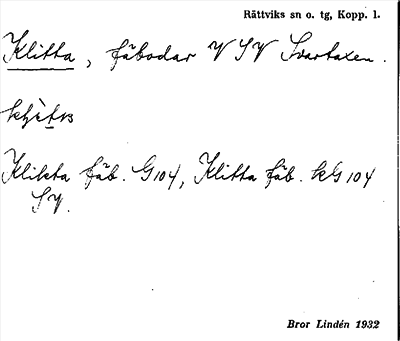 Rättviks sn o. tg, Kopp. l.
Klitta, fäbodar V SV Svartaxen.
Klikta fäb. G104, Klitta fäb. kG104
SV.
Bror Lindén 1932